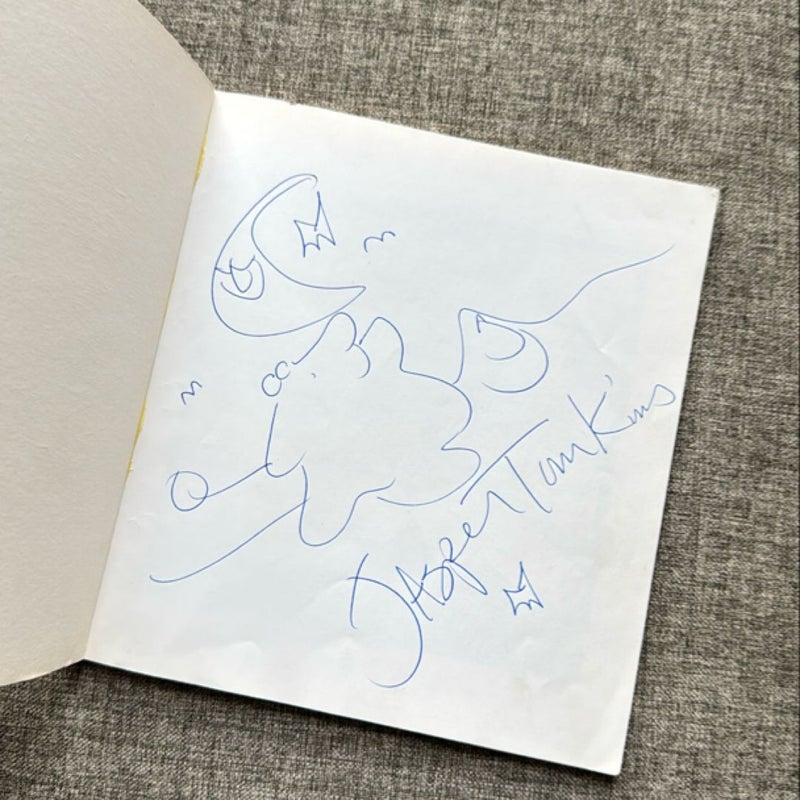 Jasper Tomkins